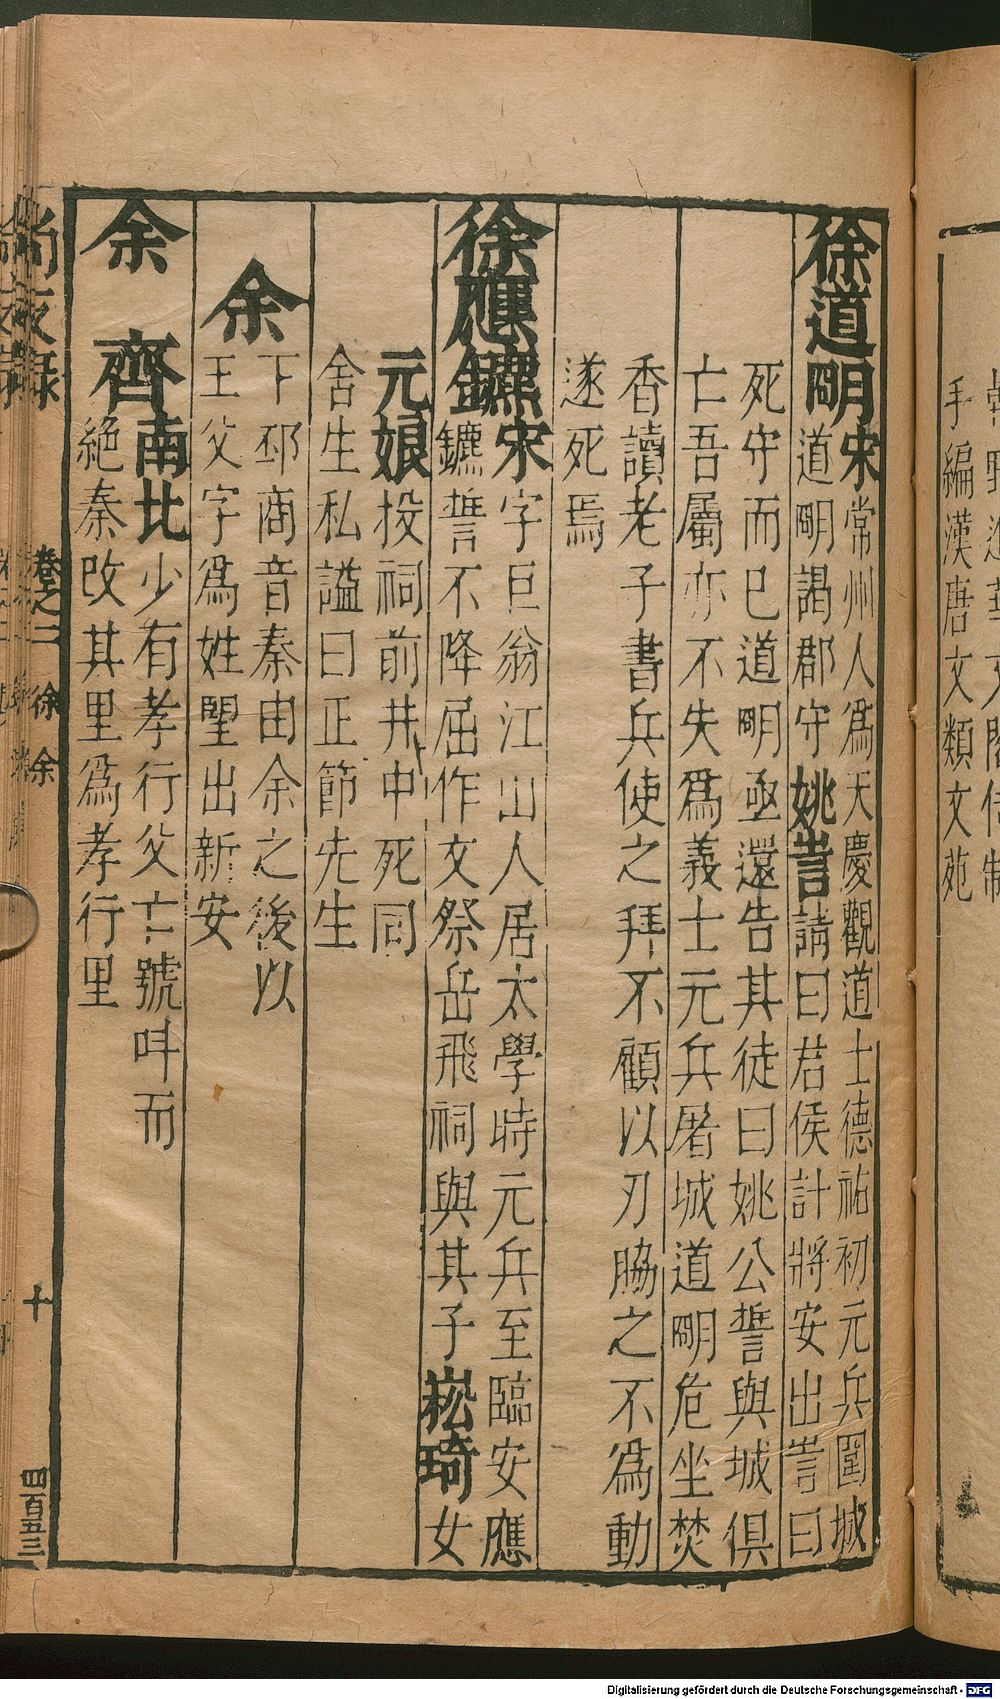 徐道明宋常州人爲天慶觀道士德祐初元兵圍城
道明謁郡守姚訔請曰君侯計將安出訔曰
死守而已道明亟還告其徒曰姚公誓與城俱
亡吾屬亦不失爲義士元兵屠城道明危坐焚
香讀老子書兵使之拜不顧以刃脇之不爲動
遂死焉
徐應鑣宋字巨翁江山人居太學時元兵至臨安應
鑣誓不降屈作文祭岳飛祠與其子崧琦女
元娘投祠前井中死同
舍生私謚曰正節先生
余
下邳商音秦由余之後以
王父字爲姓望出新安
余齊南北少有孝行父亡號呌而
絶秦改其里爲孝行里
尚友錄
卷之二 徐 余
十
四百五三
手編漢唐文類文苑
Digitalisierung gefördert durch die Deutsche Forschungsgemeinschaft - DFG